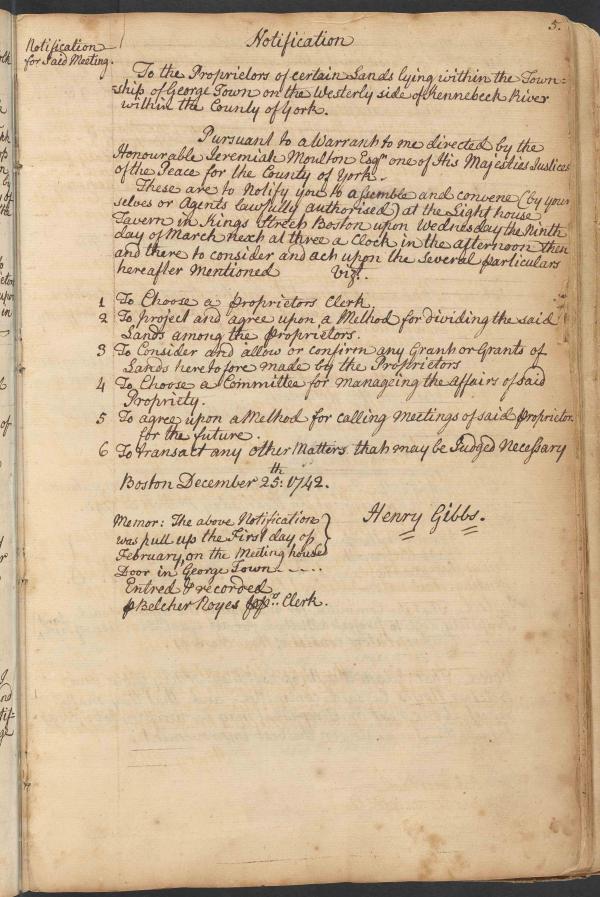 5.
Notification
for Said Meeting.
Notification
To the Proprietors of certain Lands lying within the Town=
=ship of George Town on the Westerly side of Kennebeck River
within the County of York.
Pursuant to a Warrant to me directed by the
Honourable Jeremiah Moulton Esqr. one of His Majesties Justices
of the Peace for the County of York.
These are to Notify you to assemble and convene (by your
selves or Agents lawfully authorised) at the Light house
Tavern in Kings Street Boston upon Wednesday the Ninth
day of March next at three a Clock in the afternoon then
and there to consider and act upon the Several particulars
hereafter Mentioned Vizt.
1 To Choose a Proprietors Clerk.
2 To project and agree upon a Method for dividing the said
Lands among the Proprietors.
3 To Consider and allow or confirm any Grant or Grants of
Lands heretofore made by the Proprietors
4 To Choose a Committee for manageing the affairs of said
Propriety.
5 To agree upon a Method for calling Meetings of said Proprietors
for the future.
6 To transact any other Matters that may be Judged Necessary
Boston December 25th: 1742.
Henry Gibbs.
Memor: The above Notification
was put up the First day of
February, on the Meeting house
Door in George Town
Entred & recorded
Belcher Noyes Clerk.